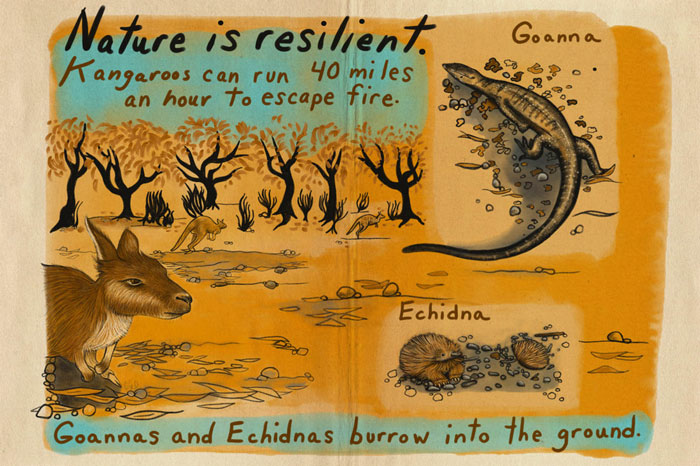 Nature is resilient.
Kangaroos can run 40 miles
an hour to escape fire.
Goanna
Echidna
Goannas and Echidnas burrow into the ground.